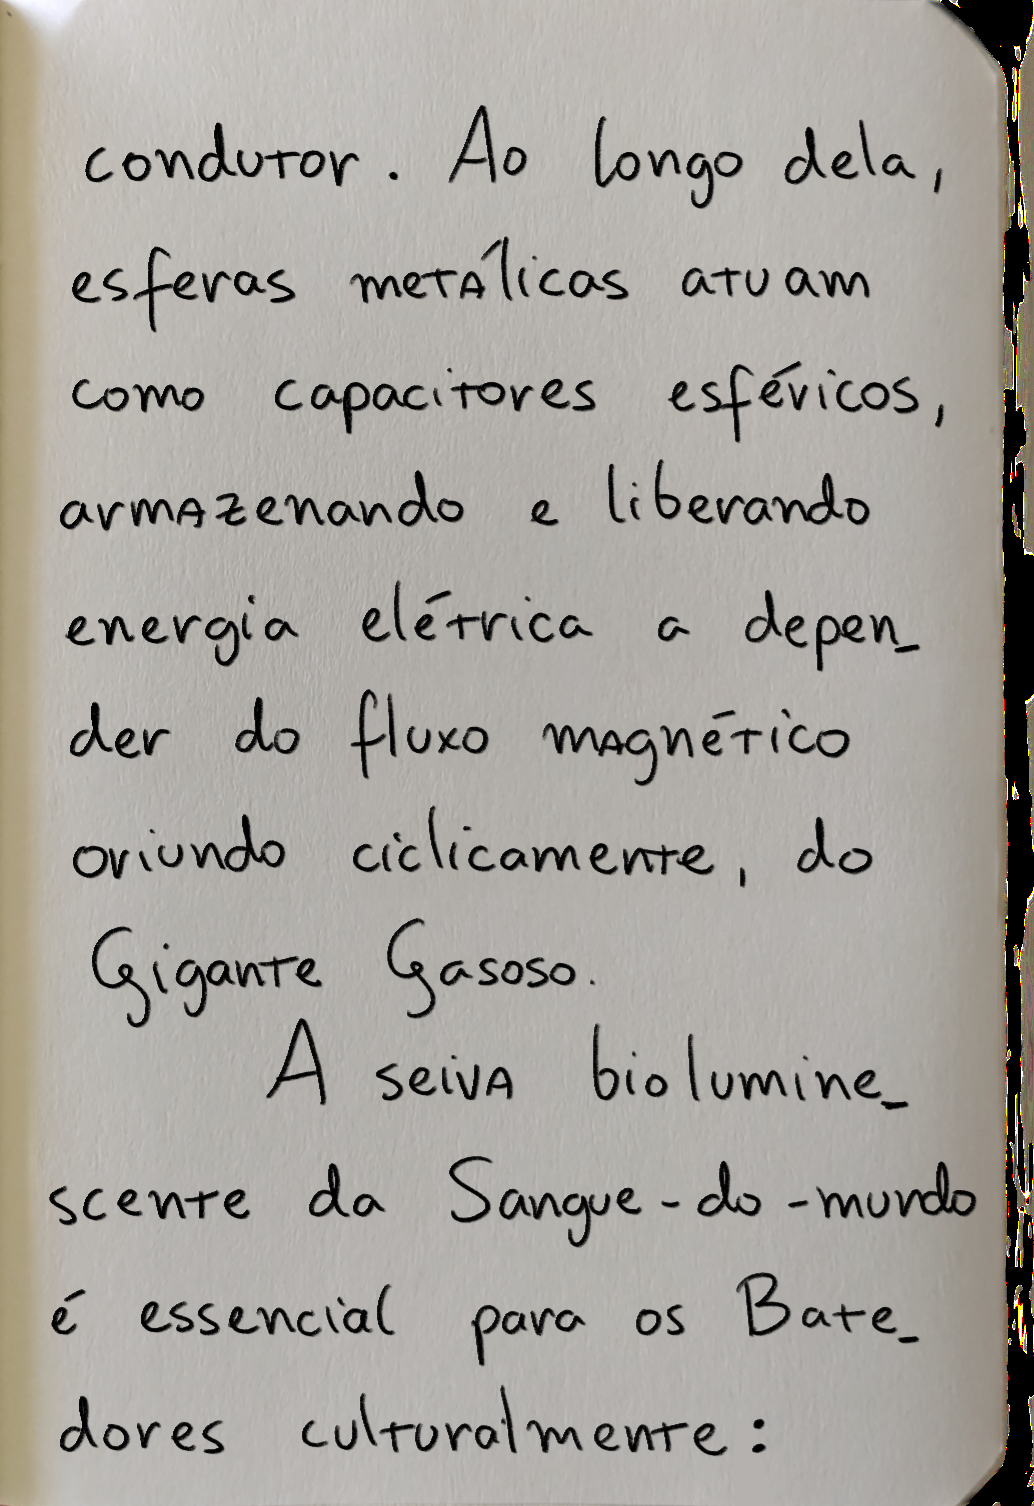 condutor. Ao longo dela,
esferas metálicas atuam
como capacitores esféricos,
armazenando e liberando
energia elétrica a depen_
der do fluxo magnético
oriundo ciclicamente, do
Gigante Gasoso.
A seiva biolumine_
scente da Sangue-do-mundo
é essencial para os Bate_
dores culturalmente: